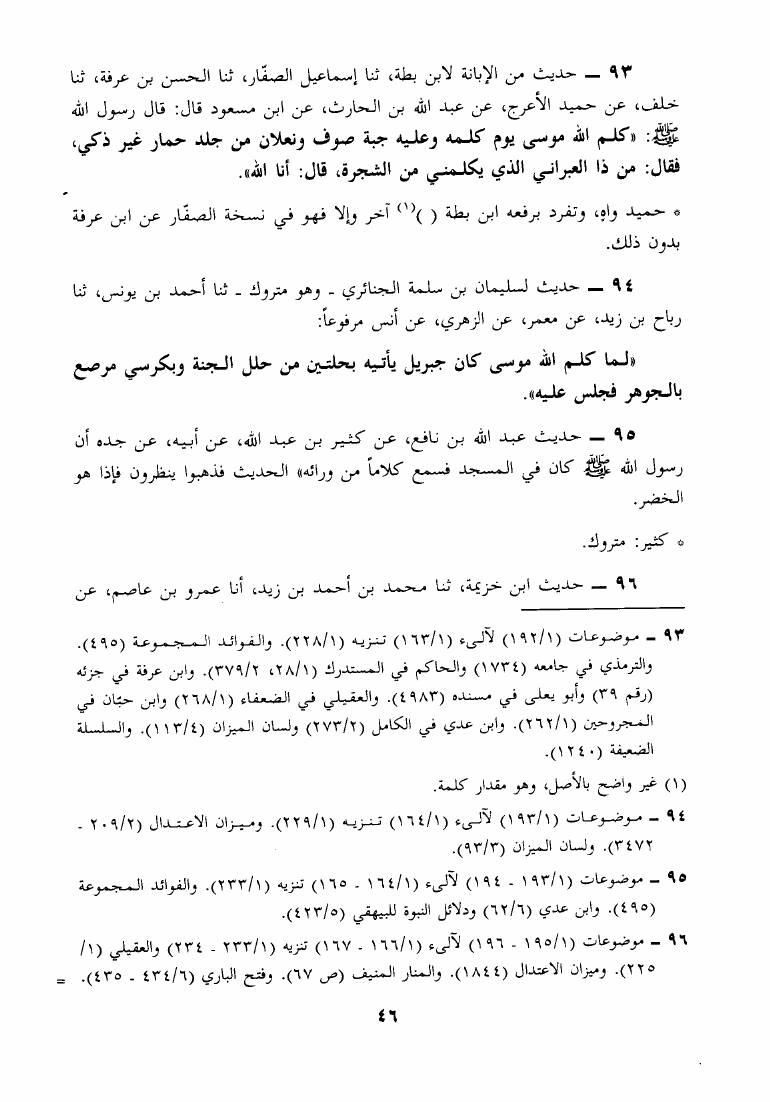 ٩٣ — حديث من الإبانة لابن بطة، ثنا إسماعيل الصفّار، ثنا الحسن بن عرفة، ثنا
خلف، عن حميد الأعرج، عن عبد الله بن الحارث، عن ابن مسعود قال: قال رسول الله
ﷺ: «كلم الله موسى يوم كلمه وعليه جبة صوف ونعلان من جلد حمار غير ذكي،
فقال: من ذا العبراني الذي يكلمني من الشجرة، قال: أنا الله».
* حميد واهٍ، وتفرد برفعه ابن بطة ( )(١) آخر وإلا فهو في نسخة الصفّار عن ابن عرفة
بدون ذلك.
٩٤ — حديث لسليمان بن سلمة الجنائري - وهو متروك - ثنا أحمد بن يونس، ثنا
رباح بن زيد، عن معمر، عن الزهري، عن أنس مرفوعاً:
«لما كلم الله موسى كان جبريل يأتيه بحلتين من حلل الجنة وبكرسي مرصع
بالجوهر فجلس عليه».
٩٥ — حديث عبد الله بن نافع، عن كثير بن عبد الله، عن أبيه، عن جده أن
رسول الله ﷺ كان في المسجد فسمع كلاماً من ورائه» الحديث فذهبوا ينظرون فإذا هو
الخضر.
* كثير: متروك.
٩٦ — حديث ابن خزيمة، ثنا محمد بن أحمد بن زيد، أنا عمرو بن عاصم، عن
٩٣ - موضوعات (١٩٢/١) لآلىء (١٦٣/١) تنزيه (٢٢٨/١). والفوائد المجموعة (٤٩٥).
والترمذي في جامعه (١٧٣٤) والحاكم في المستدرك (٢٨/١، ٣٧٩/٢). وابن عرفة في جزئه
(رقم ٣٩) وأبو يعلى في مسنده (٤٩٨٣). والعقيلي في الضعفاء (٢٦٨/١) وابن حبّان في
المجروحين (٢٦٢/١). وابن عدي في الكامل (٢٧٣/٢) ولسان الميزان (١١٣/٤). والسلسلة
الضعيفة (١٢٤٠).
(١) غير واضح بالأصل، وهو مقدار كلمة.
٩٤ - موضوعات (١٩٣/١) لآلىء (١٦٤/١) تنزيه (٢٢٩/١). وميزان الاعتدال (٢٠٩/٢ -
٣٤٧٢). ولسان الميزان (٩٣/٣).
٩٥ - موضوعات (١٩٣/١ - ١٩٤) لآلىء (١٦٤/١ - ١٦٥) تنزيه (٢٣٣/١). والفوائد المجموعة
(٤٩٥). وابن عدي (٦٢/٦) ودلائل النبوة للبيهقي (٤٢٣/٥).
٩٦ - موضوعات (١٩٥/١ - ١٩٦) لآلىء (١٦٦/١ - ١٦٧) تنزيه (٢٣٣/١ - ٢٣٤) والعقيلي (١/
٢٢٥). وميزان الاعتدال (١٨٤٤). والمنار المنيف (ص ٦٧). وفتح الباري (٤٣٤/٦ - ٤٣٥). =
٤٦